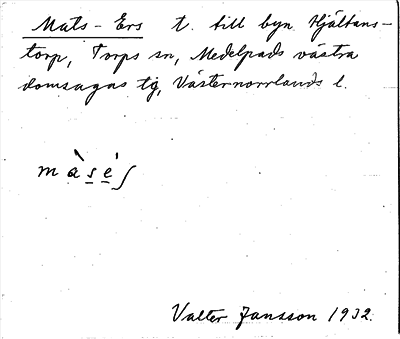 Mats-Ers t. till byn Hjältans-
torp, Torps sn, Medelpads västra
domsagas tg, Västernorrlands l.
màsés
Valter Jansson 1932.